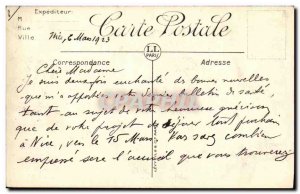 Expéditeur
M
Rue
Ville
Carte Postale
LL
PARIS
Nice, 6 Mars 1923
Correspondance
Adresse
Chère Madame
Je suis deux fois enchanté de bonnes nouvelles
que m'apportes cet bulletin de santé,
tant au sujet de votre heureuse guérison
que de votre projet de séjour tout prochain
à Nice, vers le 15 Mars. Vous savez combien
empressé sera l'accueil que vous trouverez